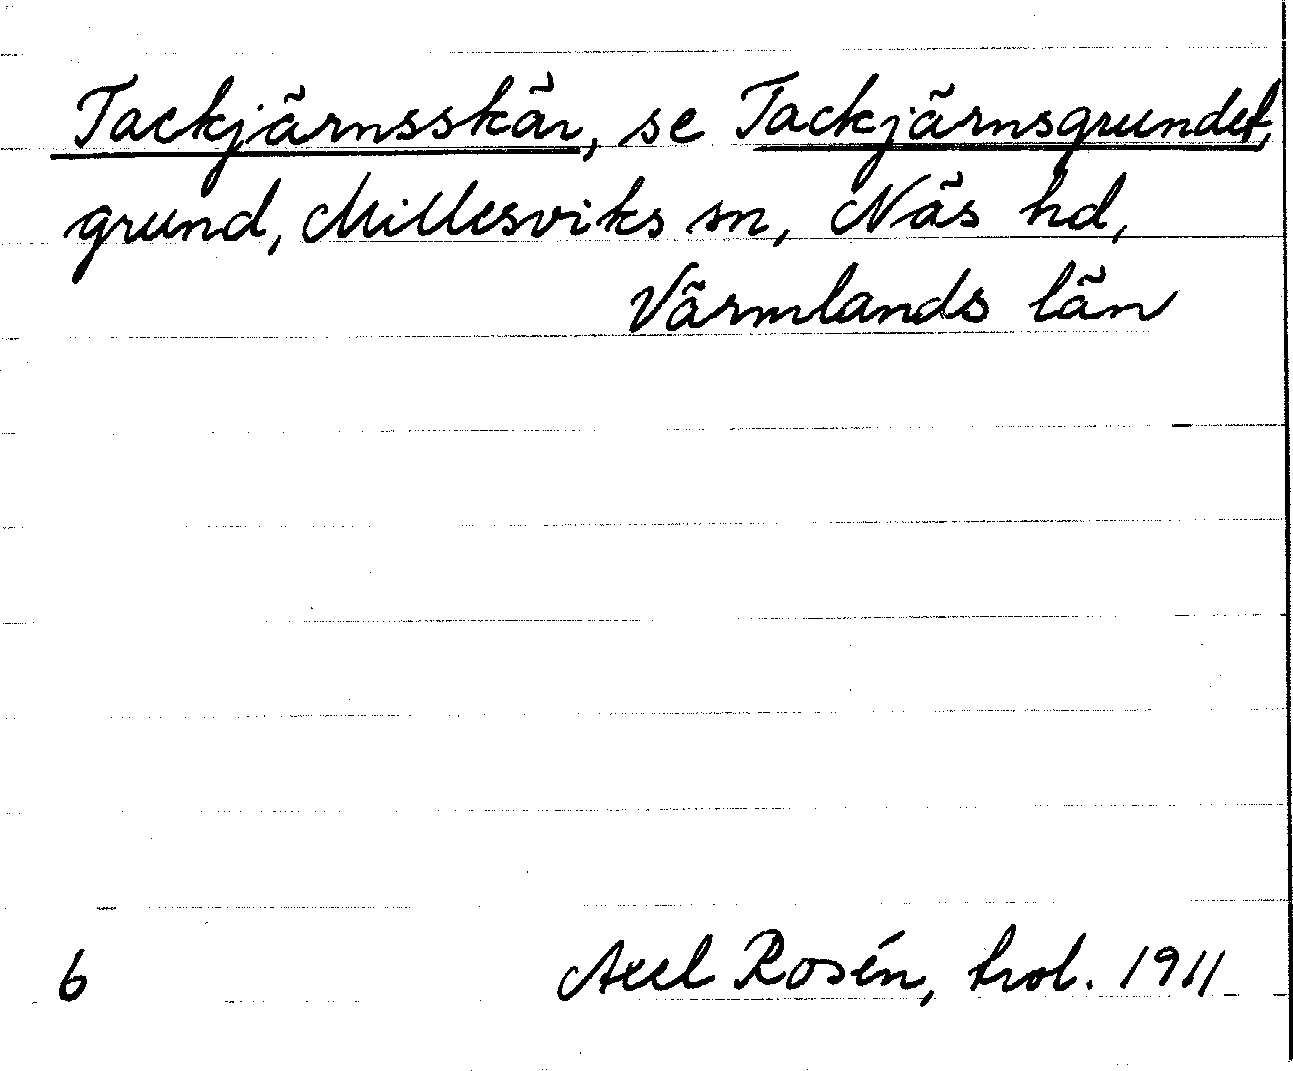 Tackjärnsskär, se Tackjärnsgrundet,
grund, Millesviks sn, Näs hd,
Värmlands län
6 Axel Rosén, trol. 1911